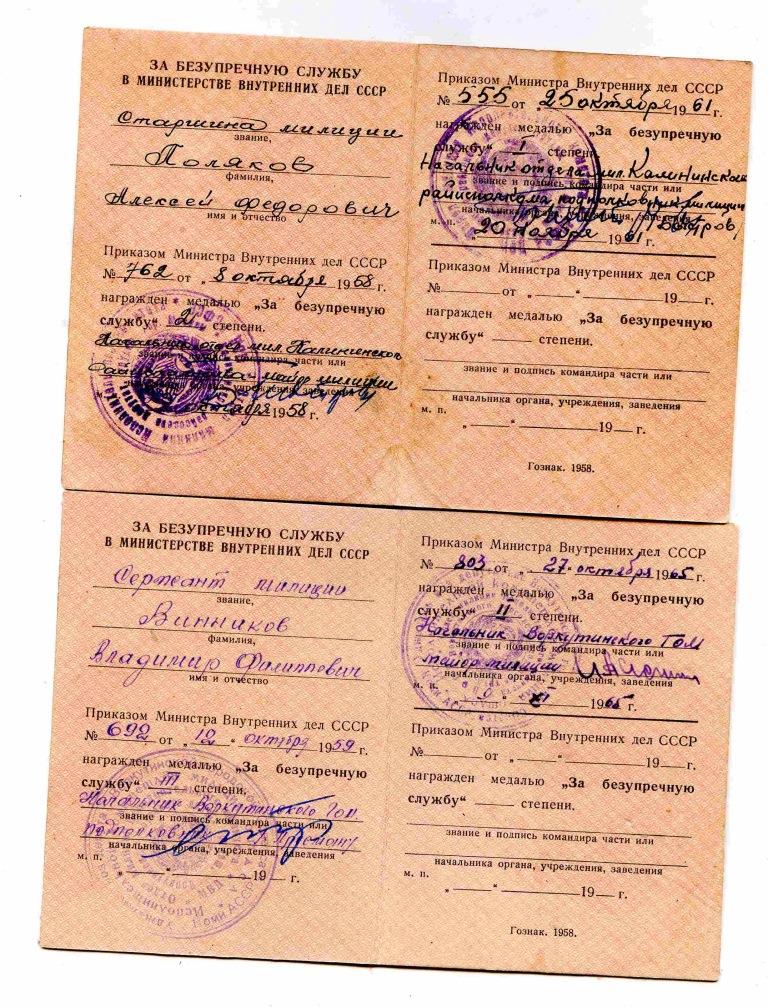 ЗА БЕЗУПРЕЧНУЮ СЛУЖБУ
В МИНИСТЕРСТВЕ ВНУТРЕННИХ ДЕЛ СССР
Старшина милиции
звание,
Поляков
фамилия,
Алексей Федорович
имя и отчество
Приказом Министра Внутренних дел СССР
№ 762 от „8 октября 1958 г.
награжден медалью „За безупречную
службу“ 2 степени.
звание и подпись командира части или
майор милиции
октября 1958 г.
Приказом Министра Внутренних дел СССР
№ 555 от „25 октября 1961 г.
награжден медалью „За безупречную
службу“ I степени.
Начальник отдела мил. Калининского
звание и подпись командира части или
райисполкома подполковник милиции
начальника органа, учреждения, заведения
м. п.
20 ноября 1961 г.
Приказом Министра Внутренних дел СССР
№ от „ “ 19 г.
награжден медалью „За безупречную
службу“ степени.
звание и подпись командира части или
начальника органа, учреждения, заведения
м. п.
„ “ 19 г.
Гознак. 1958.
ЗА БЕЗУПРЕЧНУЮ СЛУЖБУ
В МИНИСТЕРСТВЕ ВНУТРЕННИХ ДЕЛ СССР
Сержант милиции
звание,
Винников
фамилия,
Владимир Филиппович
имя и отчество
Приказом Министра Внутренних дел СССР
№ 692 от „12“ октября 1959 г.
награжден медалью „За безупречную
службу“ III степени.
Начальник Воркутинского Гом
звание и подпись командира части или
начальника органа, учреждения, заведения
м. п.
„ “ 19 г.
Приказом Министра Внутренних дел СССР
№ 803 от „27 октября 1965 г.
награжден медалью „За безупречную
службу“ II степени.
Начальник Воркутинского ГОМ
звание и подпись командира части или
майор милиции
начальника органа, учреждения, заведения
м. п.
XI 1965 г.
Приказом Министра Внутренних дел СССР
№ от „ “ 19 г.
награжден медалью „За безупречную
службу“ степени.
звание и подпись командира части или
начальника органа, учреждения, заведения
м. п.
„ “ 19 г.
Гознак. 1958.